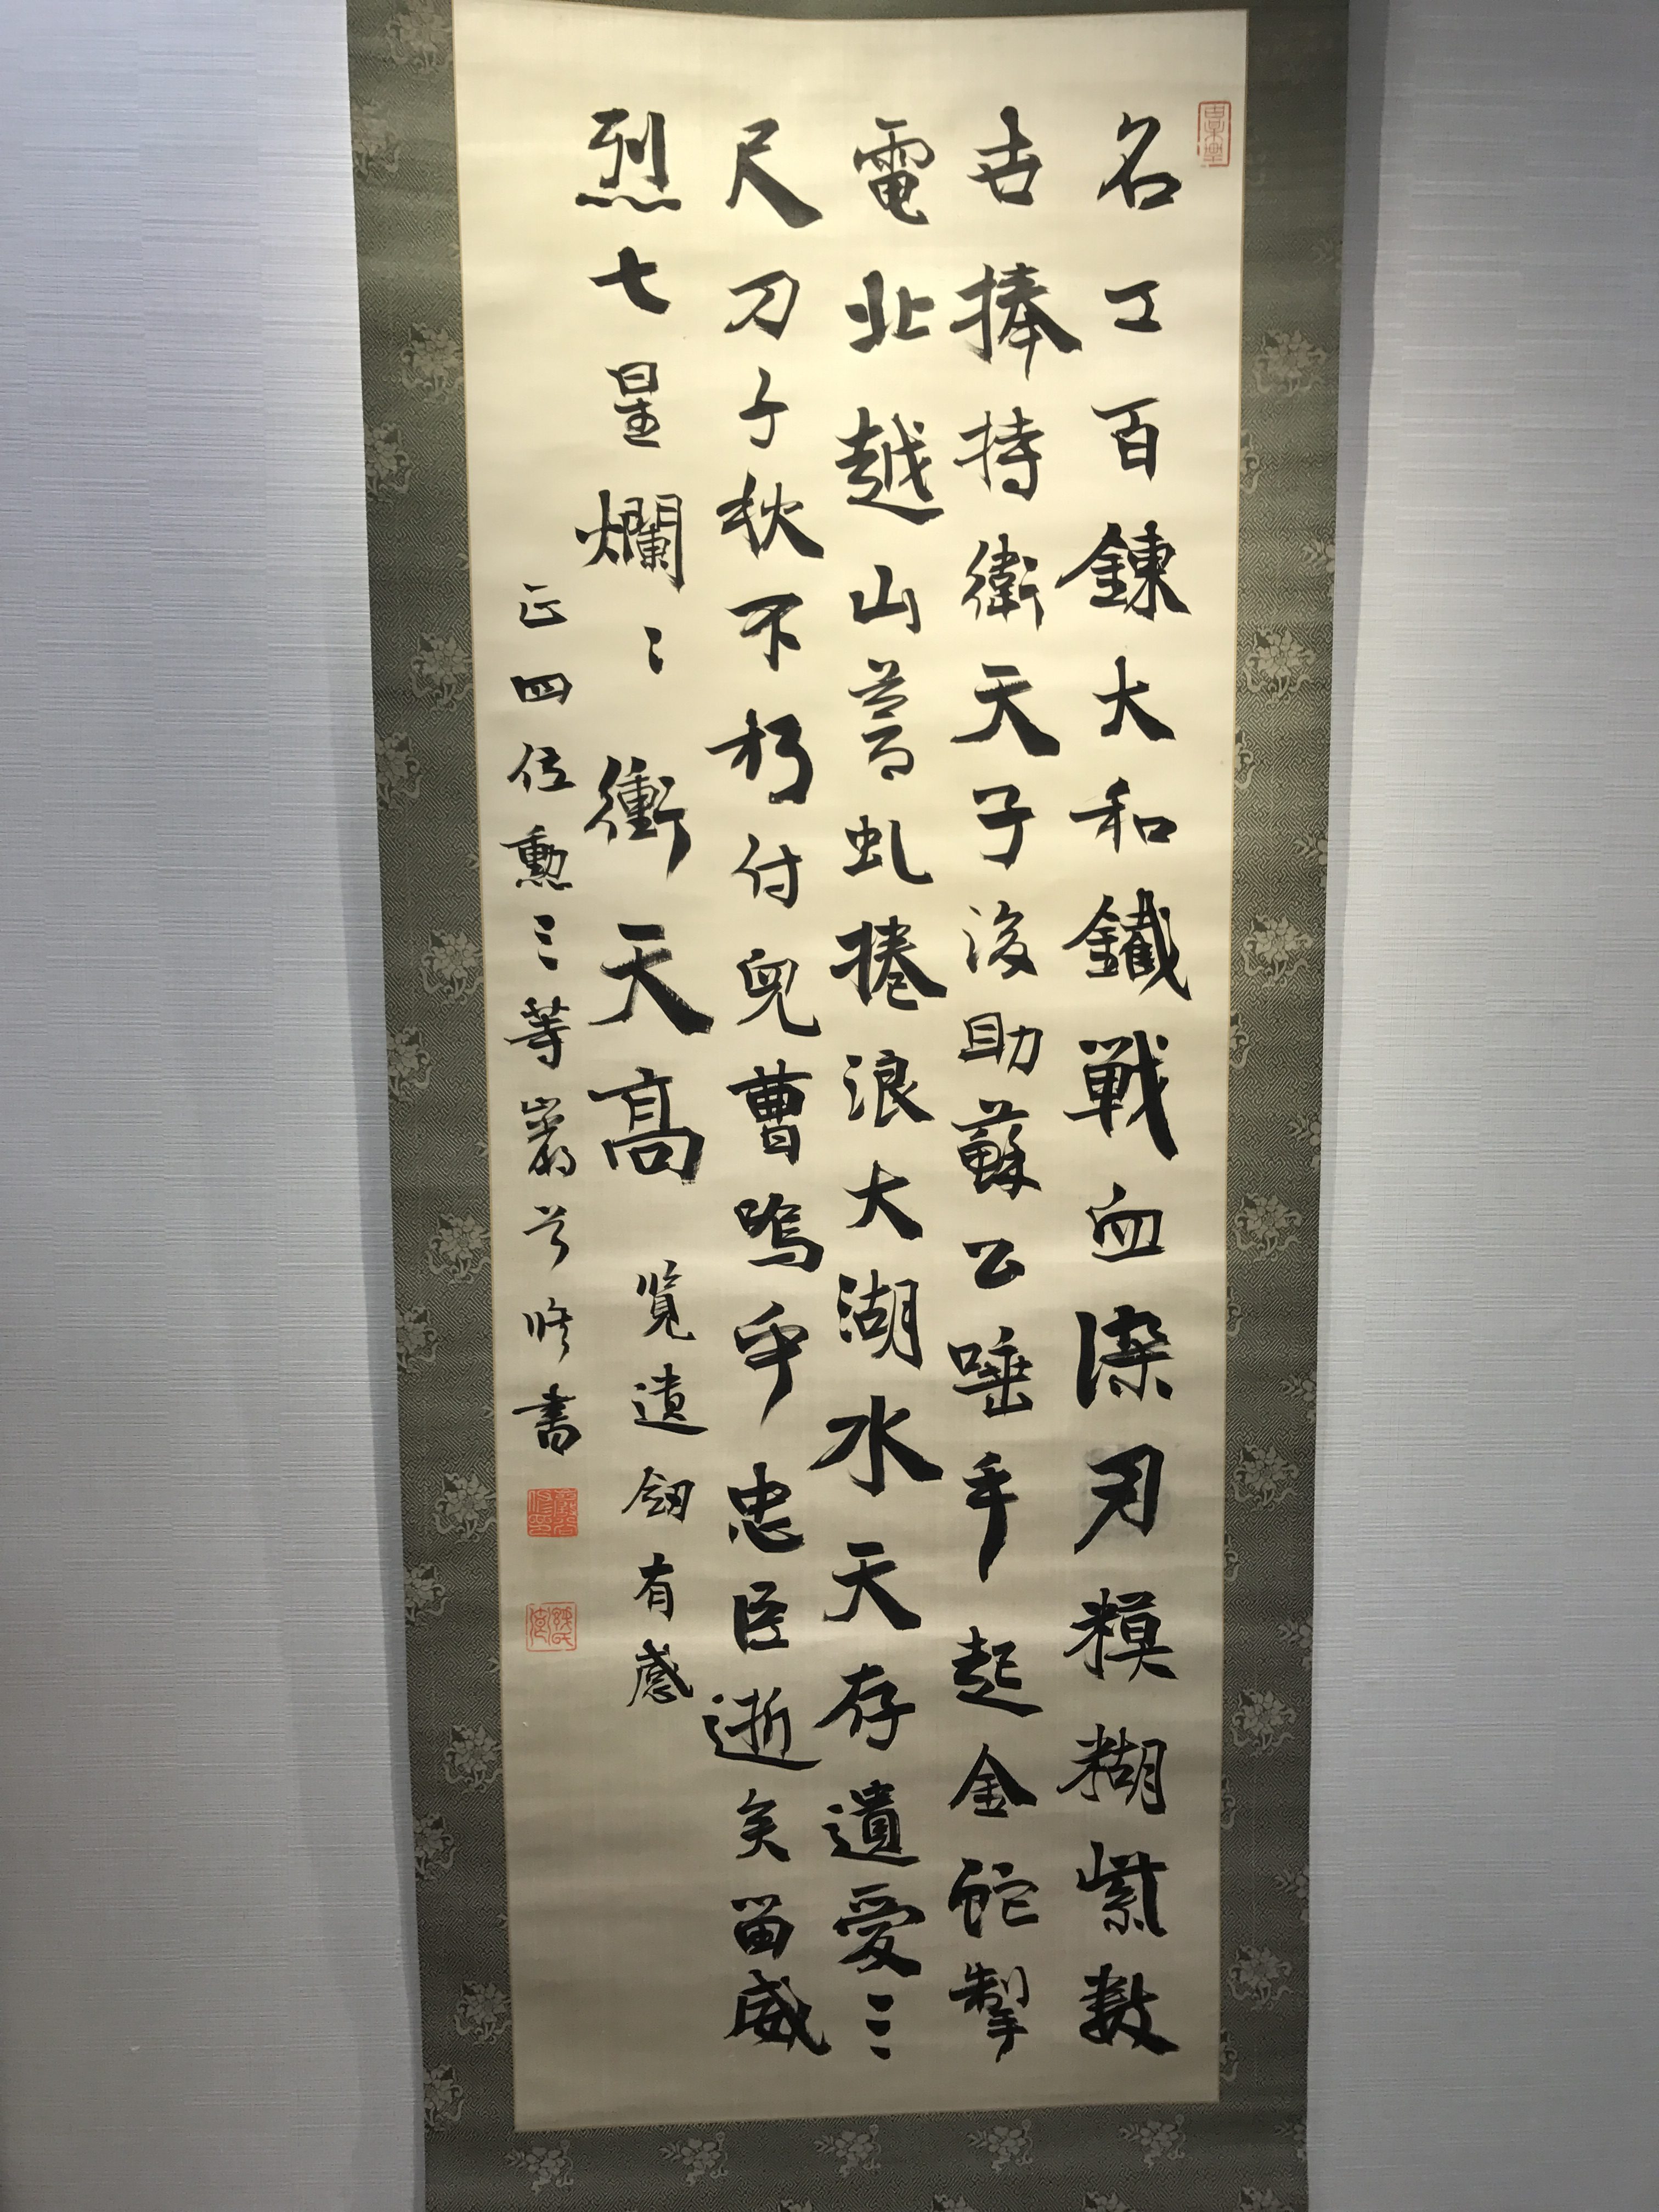 名工百錬大和鐵戦血染刃糢糊紫数
世捧持衛天子後助蘇公唾手起金蛇掣
電北越山蒼虬捲浪大湖水天存遺愛三
尺刀千秋不朽付兒曹嗚乎忠臣逝矣留威
烈七星爛〻衝天高
覧遺劔有感
正四位勲三等巖谷修書